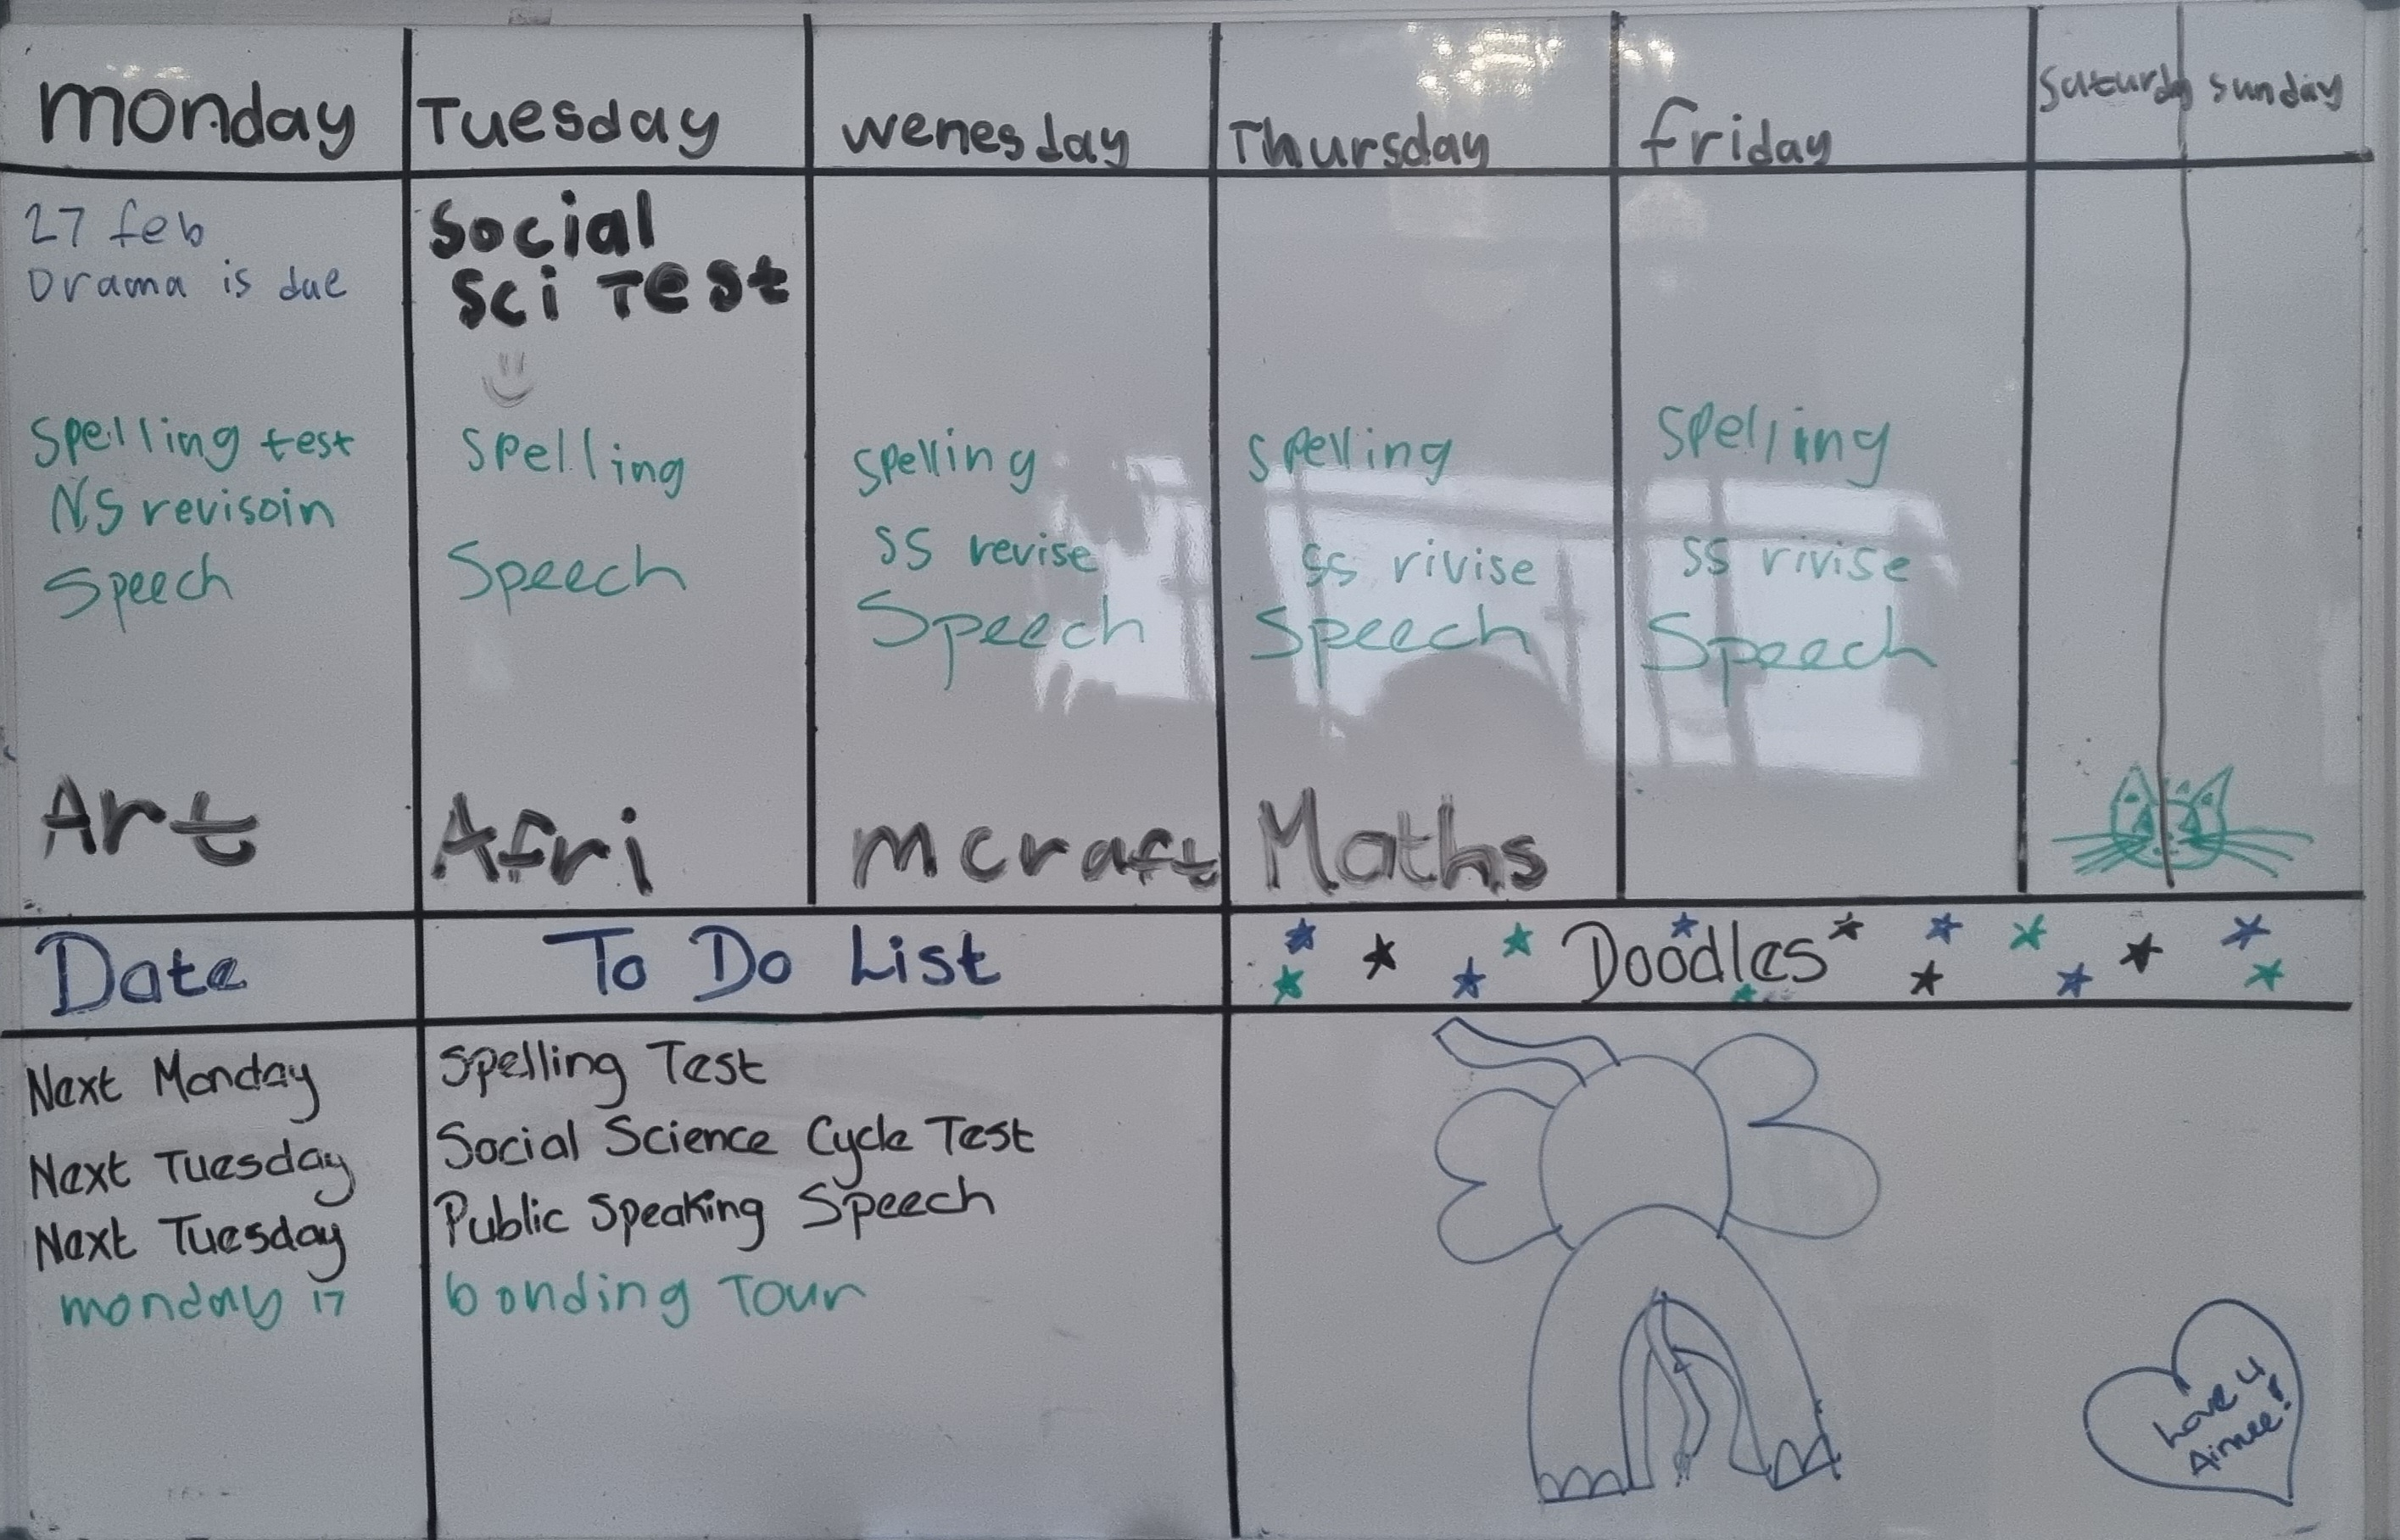 monday
Tuesday
wenesday
Thursday
friday
Saturday
sunday
27 feb
Drama is due
Spelling test
NS revisoin
Speech
Art
Social
Sci Test
Spelling
Speech
Afri
spelling
SS revise
Speech
mcraft
spelling
SS rivise
Speech
Maths
Spelling
SS rivise
Speech
Date
To Do List
Doodles
Next Monday
Spelling Test
Next Tuesday
Social Science Cycle Test
Next Tuesday
Public Speaking Speech
monday 17
bonding Tour
Love u
Aimee!